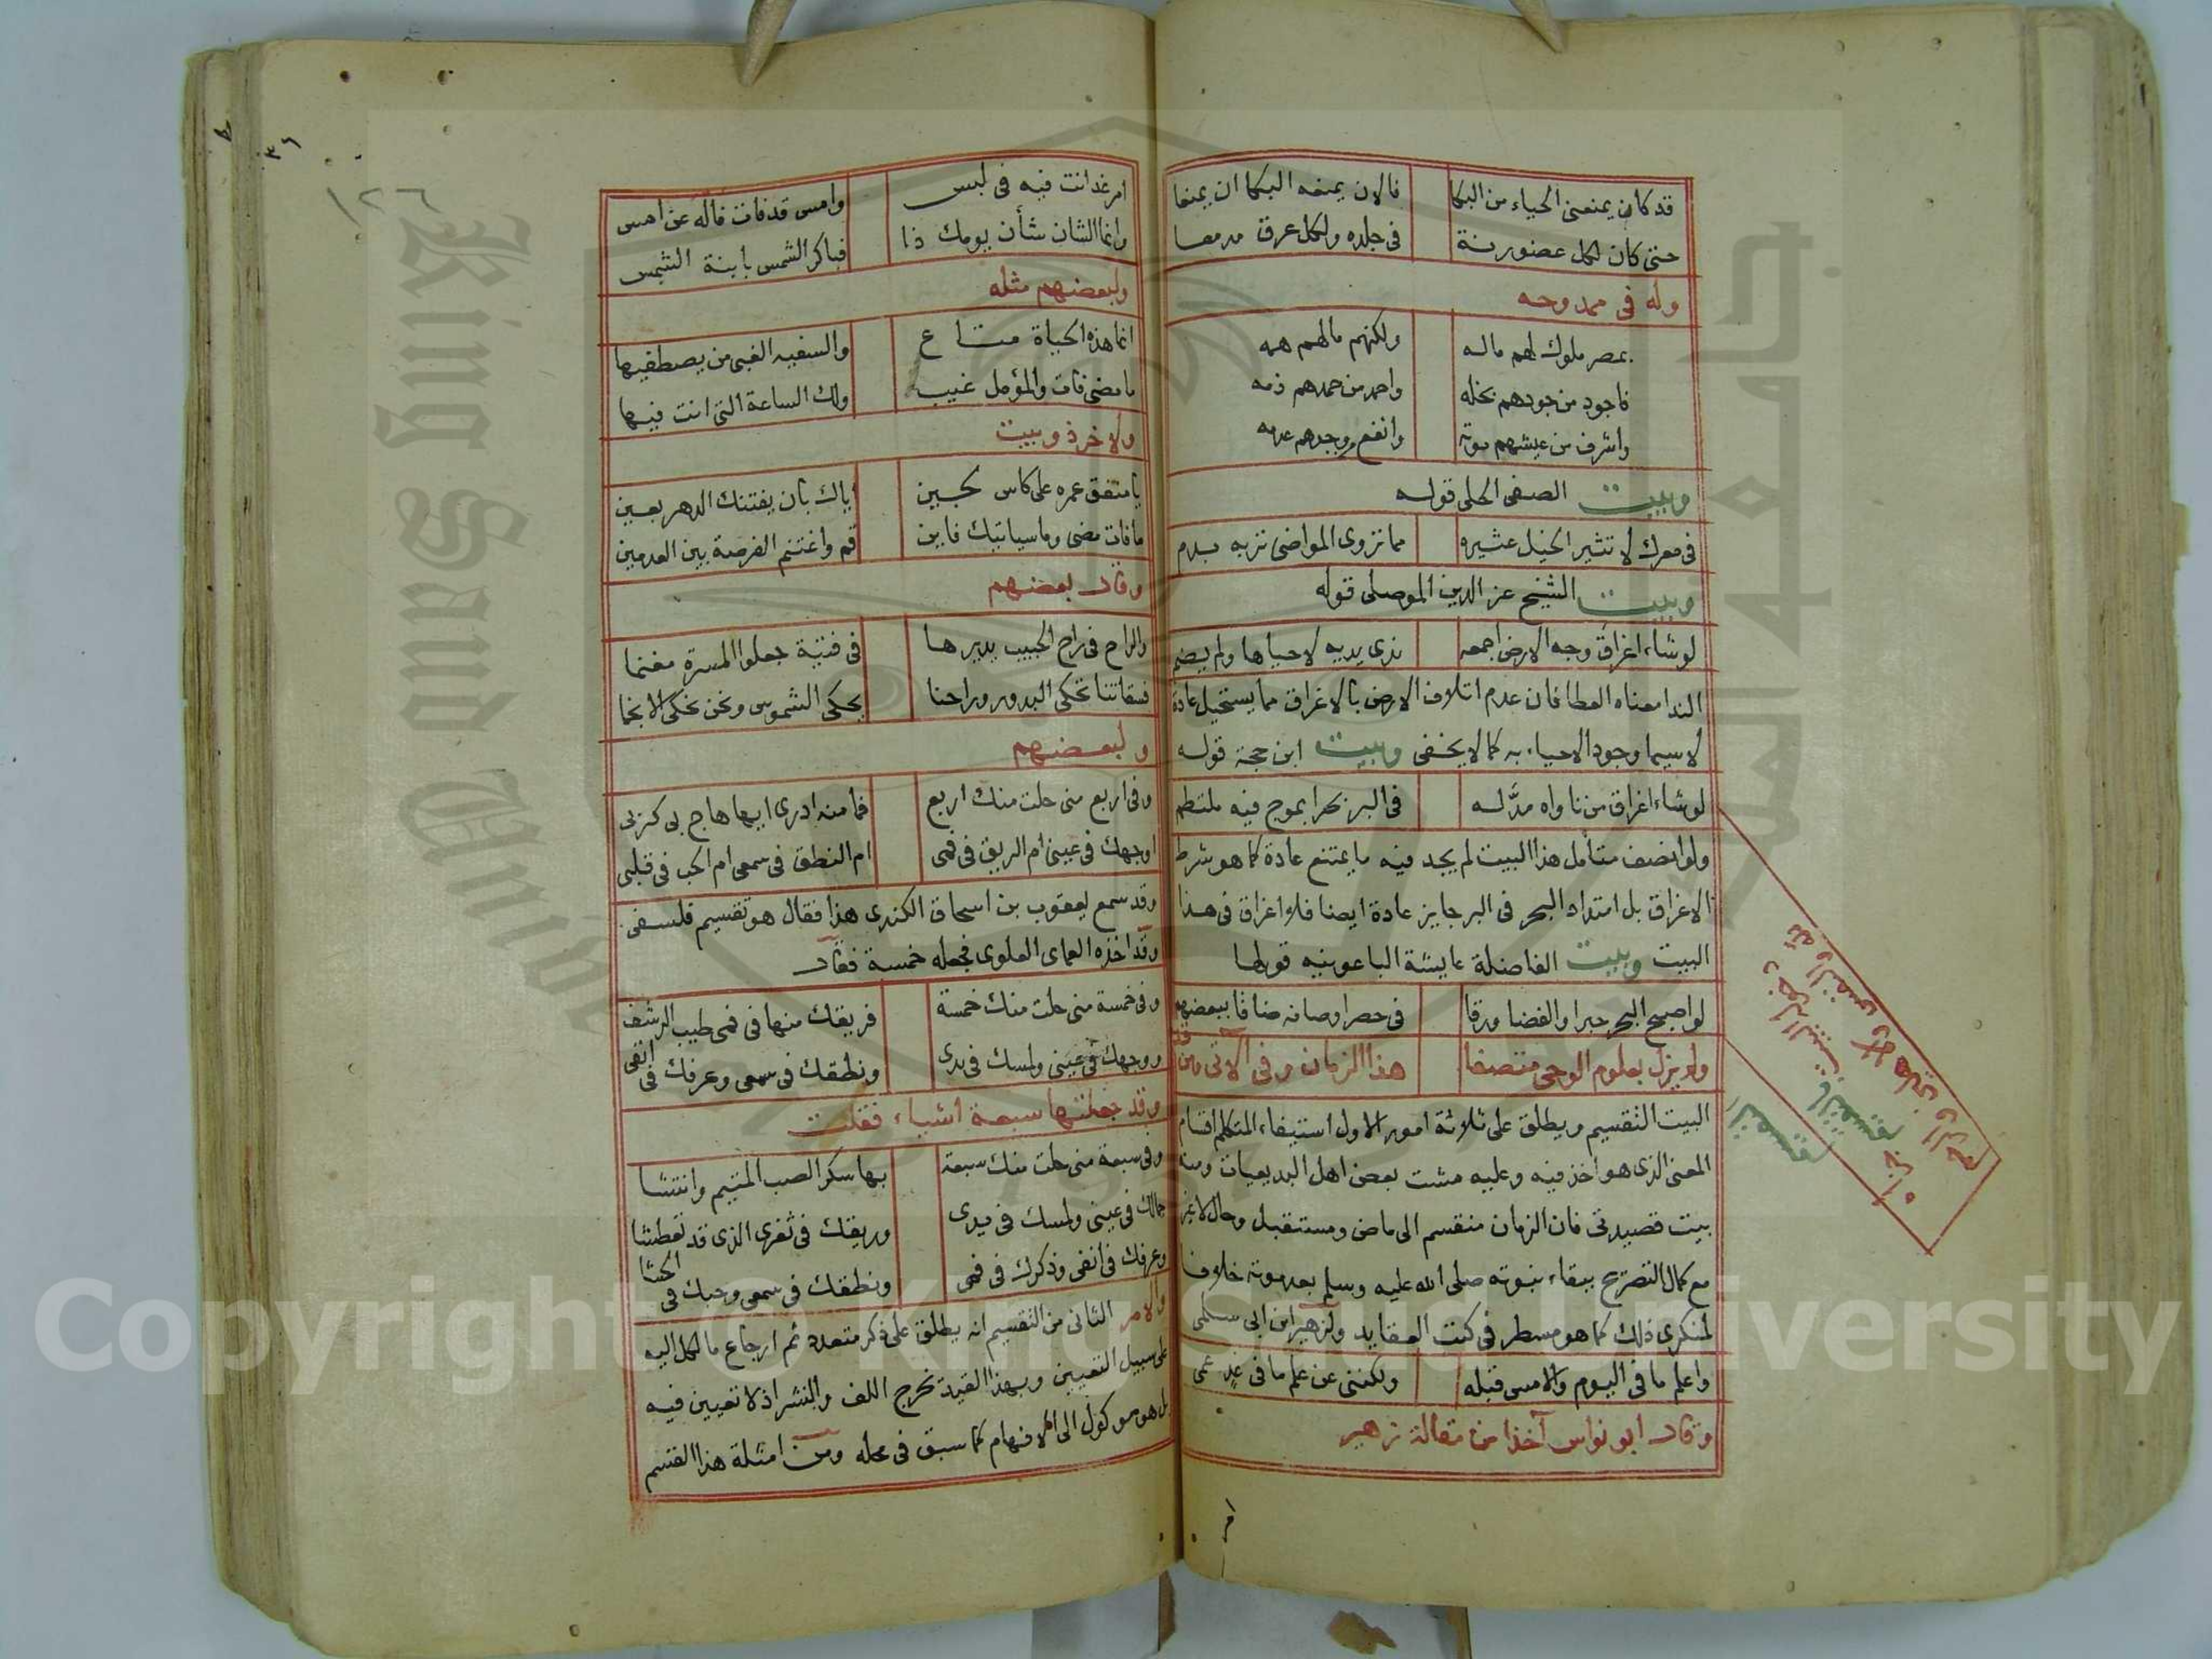 قد كان يمنعني الحياء من البكا فالان يمنعه البكا ان يمنعا
حتى كان لكل عضو رنة في جلده ولكل عرق مدمعا
وله في ممدوحه
بمصر ملوك لهم ماله ولكنهم مالهم همه
فاجود من جودهم بخله واحمد من حمدهم ذمه
واشرف من عيشهم موته وانفع من وجدهم عدمه
وبيت الصفي الحلي قوله
في معرك لا تثير الخيل عثيره مما تروى المواضي تربه بدم
وبيت الشيخ عز الدين الموصلي قوله
لو شاء اغراق وجه الارض اجمعه ندى يديه لاحياها ولم يضم
الندا معناه العطا فان عدم اتلاف الارض بالاغراق مما يستحيل عادة
لاسيما وجود الاحياء به كما لا يخفى وبيت ابن حجة قوله
لو شاء اغراق من ناواه مد له في البر بحرا بموج فيه ملتطم
ولو انصف متأمل هذا البيت لم يجد فيه ما يمتنع عادة كما هو شرط
الاغراق بل امتداد البحر في البر جايز عادة ايضا فلا اغراق في هذا
البيت وبيت الفاضلة عايشة الباعونيه قولها
لو اصبح البحر حبرا والفضا ورقا في حصر اوصافه ضاقا ببعضهم
ولم يزل بعلوم الوحي متصفا هذا الزمان وفي الآتي ومن قد
البيت التقسيم ويطلق على ثلاثة امور الاول استيفاء المتكلم اقسام
المعنى الذي هو اخذ فيه وعليه مشت بعض اهل البديعيات ومنه
بيت قصيدتي فان الزمان منقسم الى ماض ومستقبل وحال لا غير
مع كمال التصريح ببقاء نبوته صلى الله عليه وسلم بعد موته خلافا
لمنكري ذلك كما هو مسطر في كتب العقايد ولزهير ابن ابي سلمى
واعلم ما في اليوم والامس قبله ولكنني عن علم ما في غد عمي
وقال ابو نواس آخذا من مقالة زهير
امر
امر غد انت فيه في لبس وامس قد فات فاله عن امس
وانما الشان شأن يومك ذا فباكر الشمس بابنة الشمس
ولبعضهم مثله
انما هذه الحياة متاع والسفيه الغبي من يصطفيها
ما مضى فات والمؤمل غيب ولك الساعة التي انت فيها
ولاخر ذو بيت
يا منفق عمره على كاس لجين اياك بان يفتنك الدهر بعين
ما فات مضى وما سياتيك فاين قم واغتنم الفرصة بين العدمين
وقال بعضهم
والراح في راح الحبيب يديرها في فتية جعلوا المسرة مغنما
فسقاتنا تحكي البدور وراحنا يحكي الشموس ونحن نحكي الانجما
ولبعضهم
وفي اربع مني حلت منك اربع فما منه ادري ايها هاج بي كربي
اوجهك في عيني ام الريق في فمي ام النطق في سمعي ام الحب في قلبي
وقد سمع يعقوب بن اسحاق الكندي هذا فقال هو تقسيم فلسفي
وقد اخذه العماى العلوى فجعله خمسة فقال
وفي خمسة مني حلت منك خمسة فريقك منها في فمي طيب الرشف
ووجهك في عيني ولمسك في يدي ونطقك في سمعي وعرفك في انفي
وقد جعلتها سبعة اشياء فقلت
وفي سبعة مني حلت منك سبعة بها سكر الصب المتيم وانتشا
جمالك في عيني ولمسك في يدي وريقك في ثغري الذي قد تعطشا
وعرفك في انفي وذكرك في فمي ونطقك في سمعي وحبك في الحشا
والامر الثاني من التقسيم انه يطلق على ذكر متعدد ثم ارجاع ما لكل اليه
على سبيل التعيين وبهذا القيد تخرج اللف والنشر اذ لا تعيين فيه
بل هو موكول الى الافهام كما سبق في محله ومن امثلة هذا القسم
١٢٦
Copyright © King Saud University
King Saud University